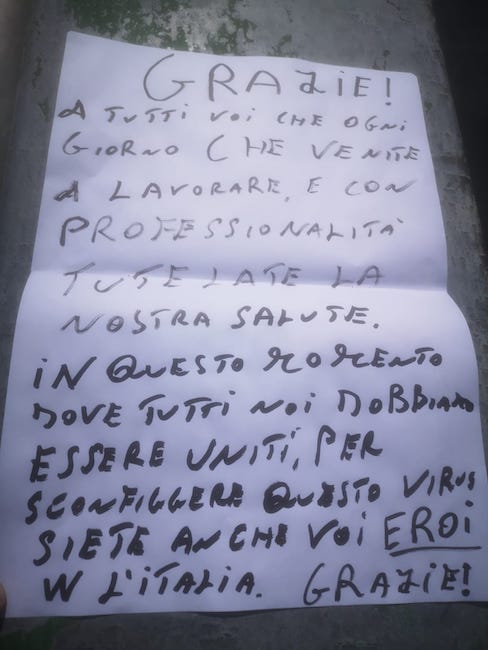 GRAZIE!
A TUTTI VOI CHE OGNI
GIORNO CHE VENITE
A LAVORARE, E CON
PROFESSIONALITÀ
TUTELATE LA
NOSTRA SALUTE.
IN QUESTO MOMENTO
DOVE TUTTI NOI DOBBIAMO
ESSERE UNITI, PER
SCONFIGGERE QUESTO VIRUS
SIETE ANCHE VOI EROI
W L'ITALIA. GRAZIE!